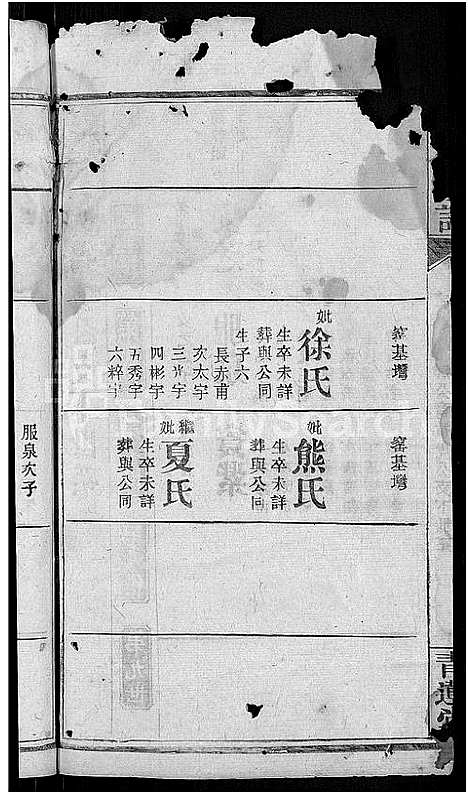 窰基塆
妣徐氏
生卒未詳
葬與公同
生子六
長赤甫
次太宇
三光宇
四彬宇
五秀宇
六粹宇
窰基塆
妣熊氏
生卒未詳
葬與公同
繼妣夏氏
生卒未詳
葬與公同
服泉次子